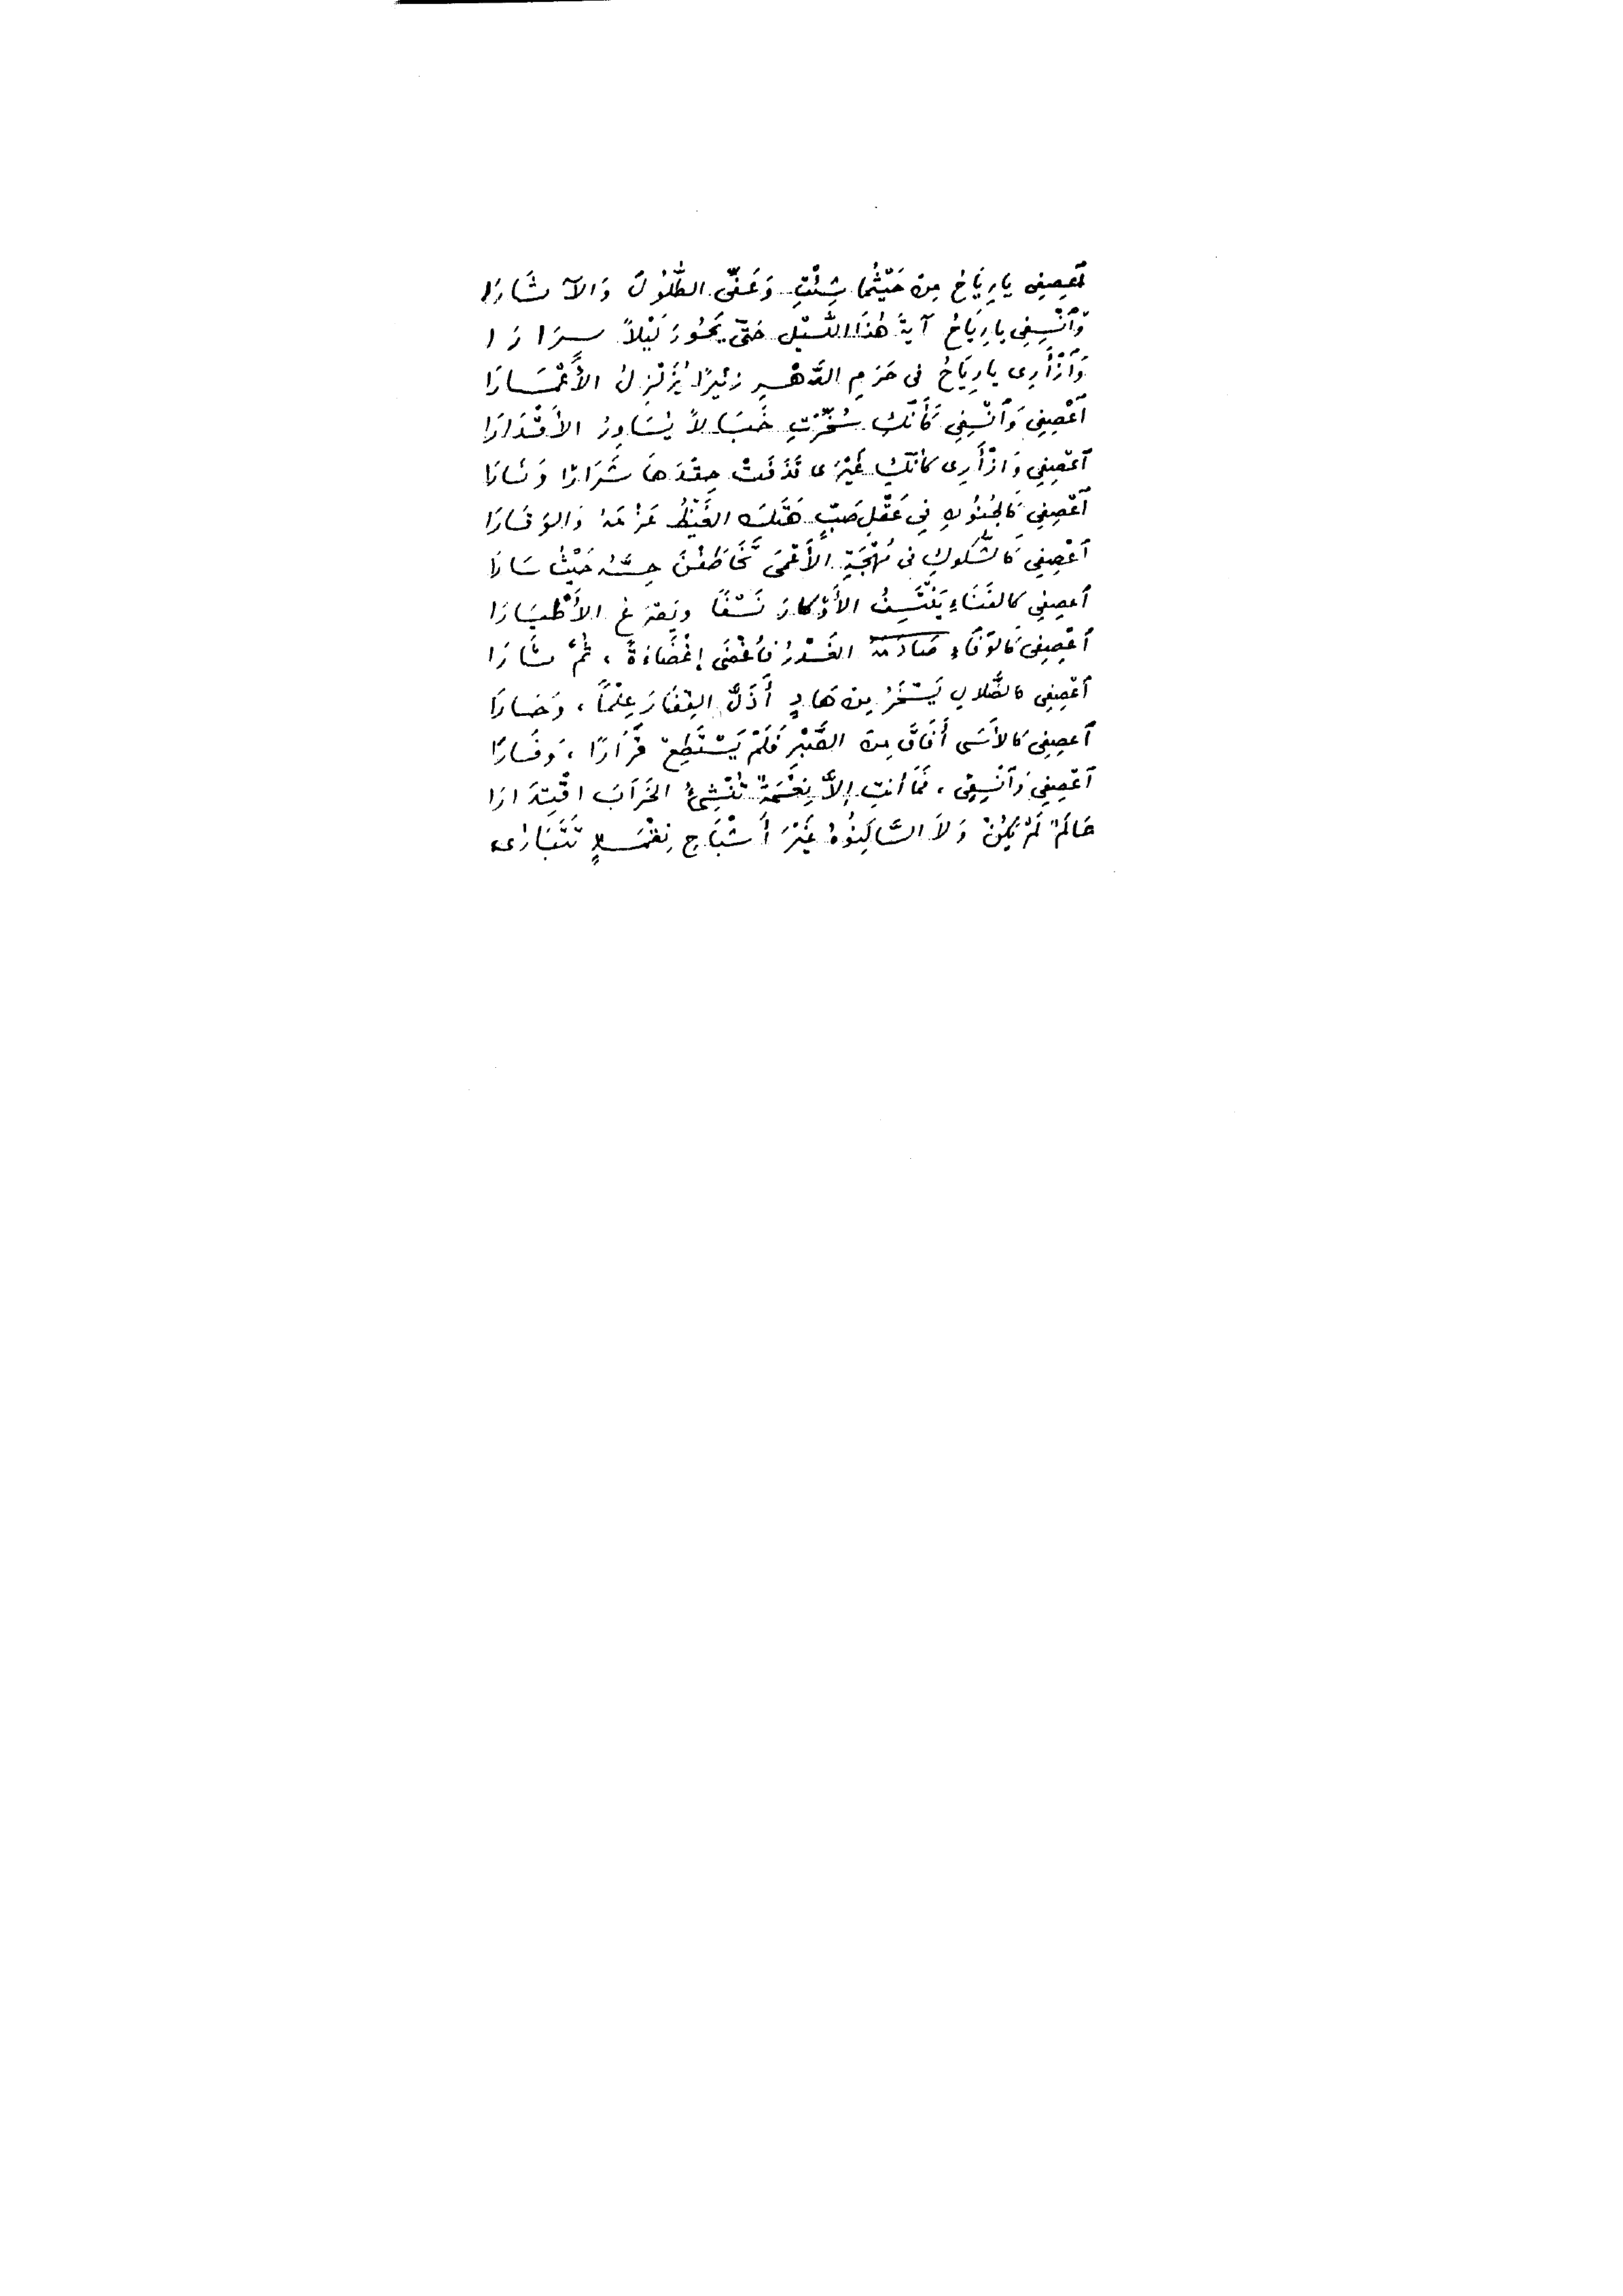 ٱعْصِفِى يَا رِيَاحُ مِنْ حَيْثُمَا شِئْتِ وَعَفِّى الطُّلُولَ وَالآثَارَا
وَٱنْسِفِى يا رِيَاحُ آيَةَ هٰذَا اللَّيْلِ حَتَّى يَحُورَ لَيْلاً سِرَارَا
وَٱزْأَرِى يا رِيَاحُ فى حَرَمِ الدَّهْرِ زَئِيرًا يُزَلْزِلُ الأَعْمَارَا
ٱعْصِفِى وَٱنْسِفِى كَأَنَّكِ سُخِّرْتِ خَبَالاً يُسَاوِرُ الأَقْدَارَا
ٱعْصِفِى وَازْأَرِى كأنَّكِ غَيْرَى قَذَفَتْ حِقْدَهَا شَرَارًا وَنَارَا
ٱعْصِفِى كَالجُنُونِ فِى عَقْلِ صَبٍّ هَتَكَ الغَيْظُ عَزْمَهُ وَالوَقَارَا
ٱعْصِفِى كَالشُّكُوكِ فى مُهْجَةِ الأَعْمَى تَخَاطَفْنَ حِسَّهُ حَيْثُ سَارَا
ٱعصِفِى كالفَنَاءِ يَنْتَسِفُ الأَوْكَارَ نَسْفًا ويَصْرَعُ الأَطْيَارَا
ٱعْصِفِى كَالوَفَاءِ صَادَمَهُ الغَدْرُ فَأَغْضَى إغْضَاءَةً ، ثُمَّ ثَارَا
ٱعْصِفِى كالضَّلالِ يَسْخَرُ مِنْ هَادٍ أَذَلَّ القِفَارَ عِلْمًا ، وَحَارَا
ٱعصِفِى كَالأَسَى أَفَاقَ مِنَ الصَّبْرِ فَلَمْ يَسْتَطِعْ قَرَارًا ، وَفَارَا
ٱعْصِفِى وَٱنْسِفِى ، فَمَا أنتِ إلاَّ نِعْمَةٌ تُنْشِئُ الخَرَابَ اقْتِدَارَا
عَالَمٌ لَمْ يَكُنْ وَلاَ السَّاكِنُوهُ غَيْرَ أَشْبَاحِ نِقْمَةٍ تَتَبَارَى